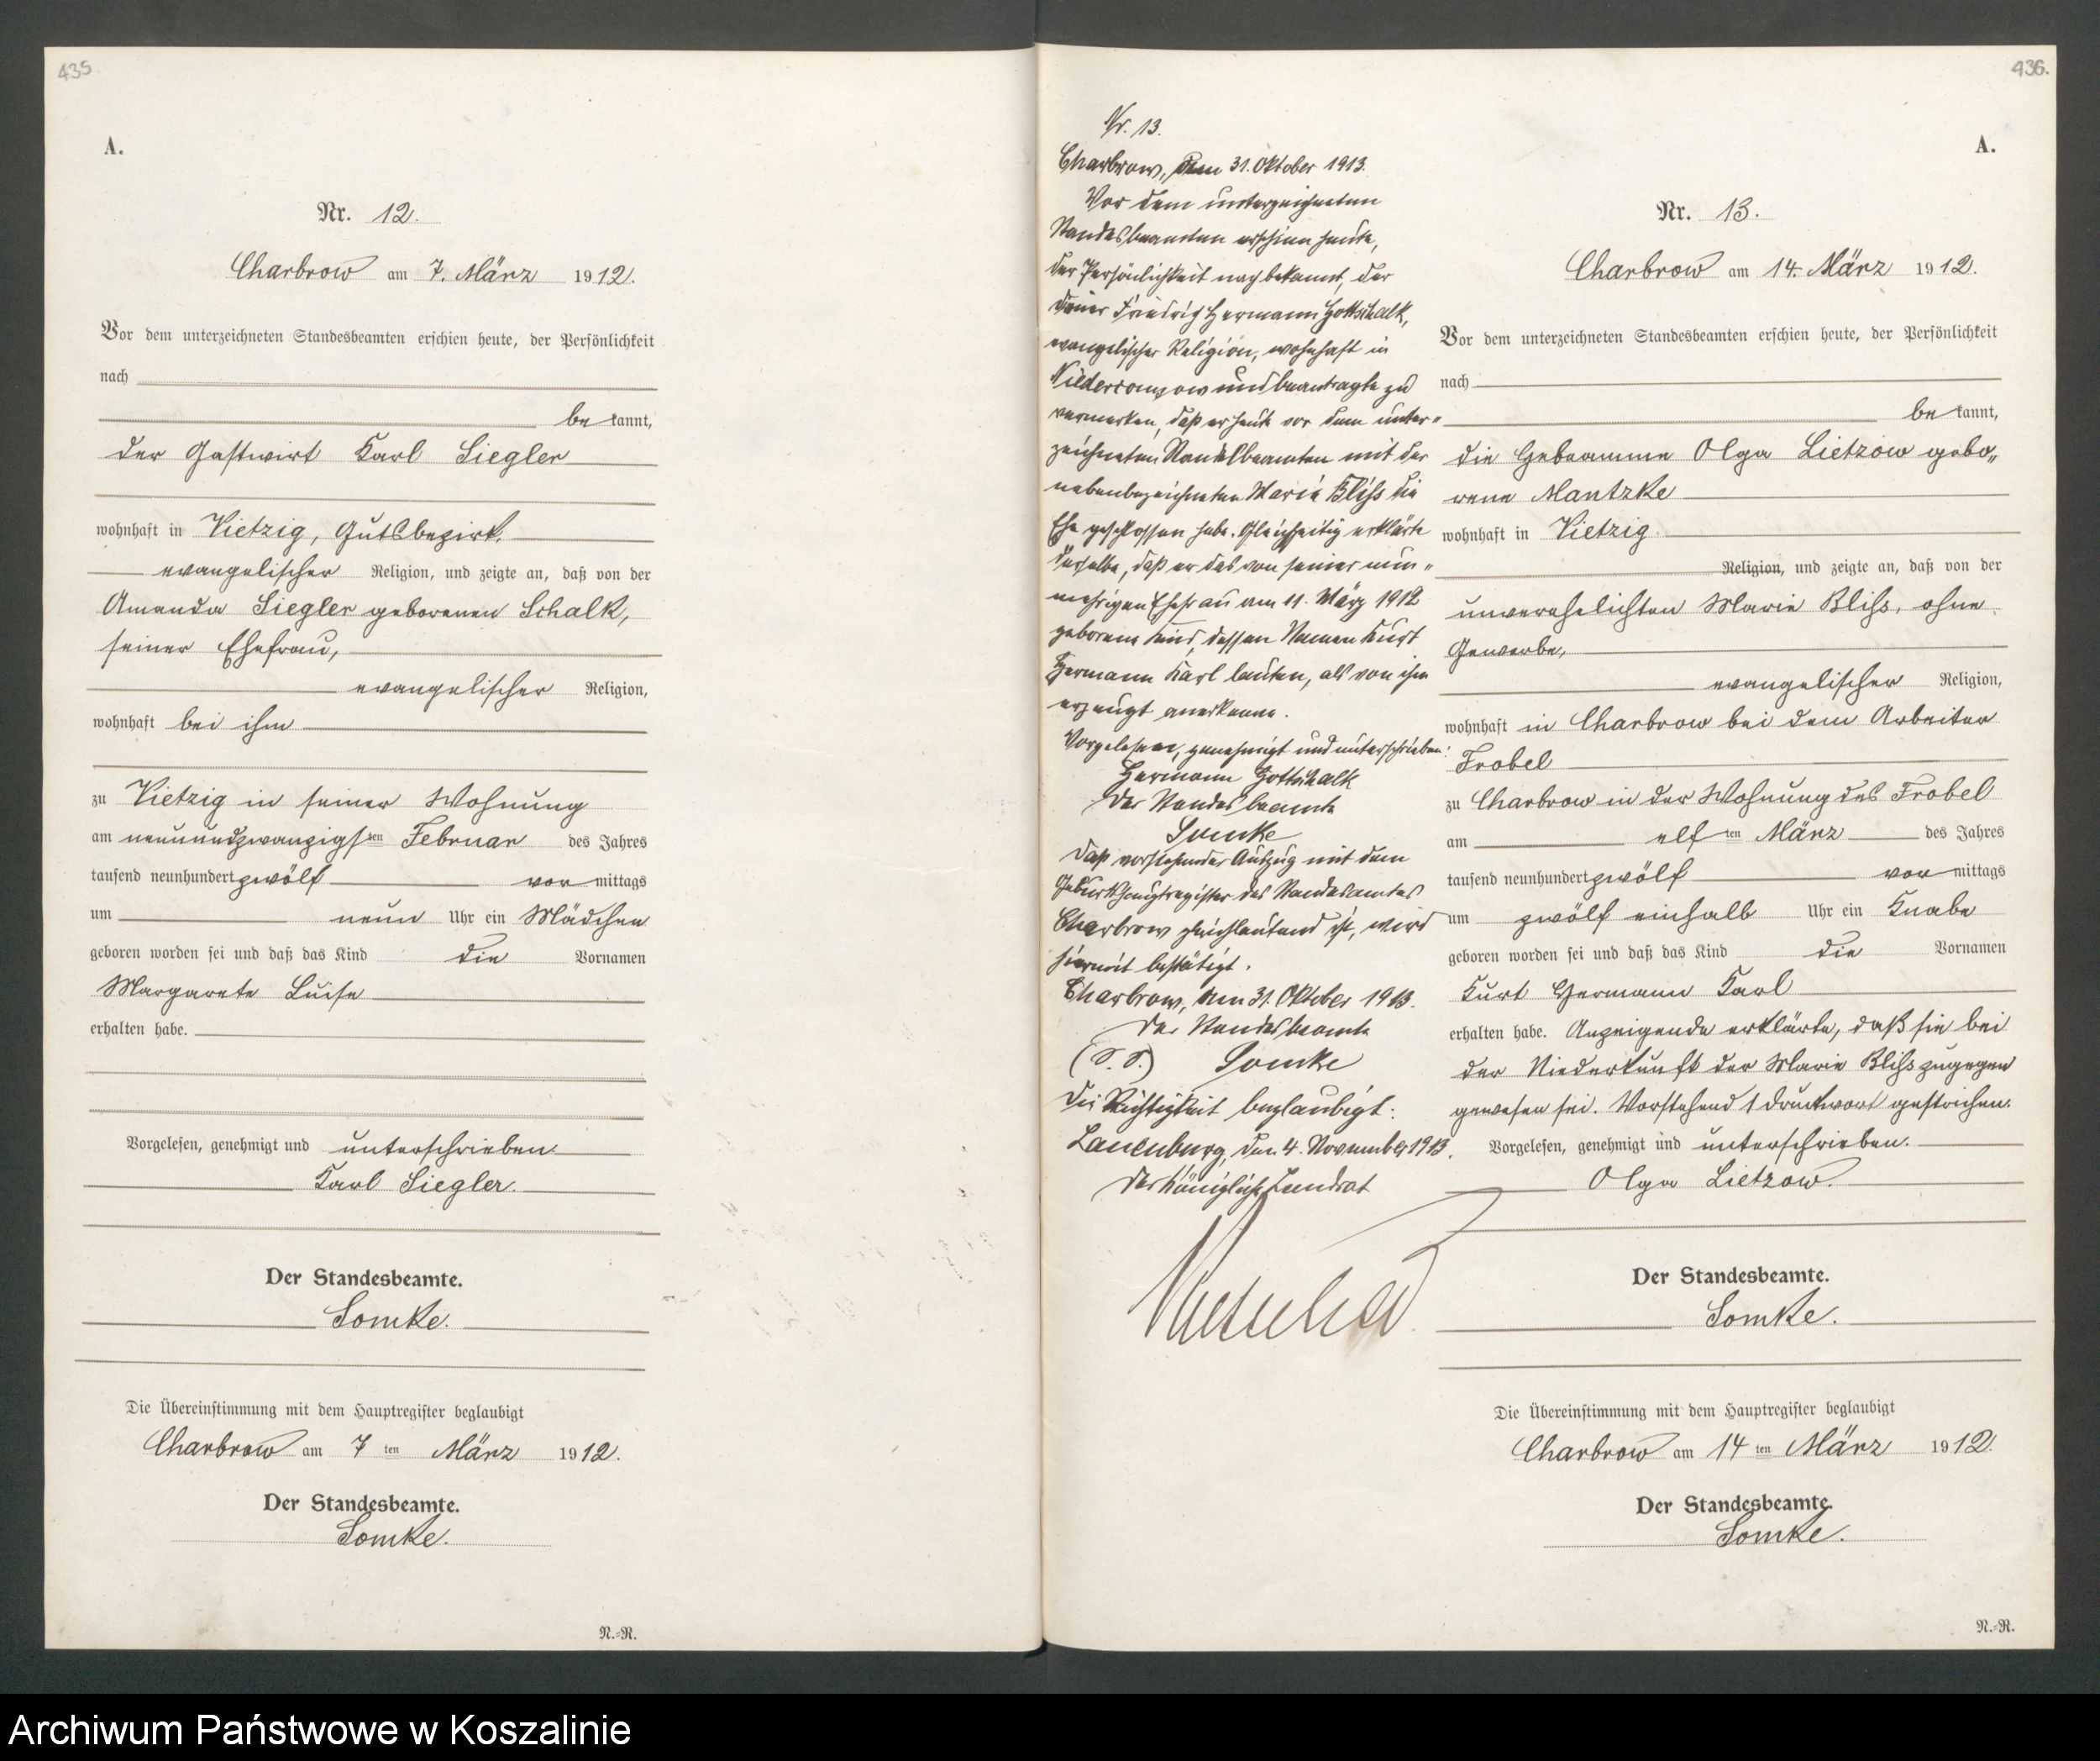 435
A.
Nr. 12.
Charbrow am 7. März 1912.
Vor dem unterzeichneten Standesbeamten erschien heute, der Persönlichkeit
nach
be kannt,
der Gastwirt Karl Siegler
wohnhaft in Vietzig, Gutsbezirk,
evangelischer Religion, und zeigte an, daß von der
Amanda Siegler geborenen Schalk,
seiner Ehefrau,
evangelischer Religion,
wohnhaft bei ihm
zu Vietzig in seiner Wohnung
am neunundzwanzigsten Februar des Jahres
tausend neunhundert zwölf vor mittags
um neun Uhr ein Mädchen
geboren worden sei und daß das Kind die Vornamen
Margarete Luise
erhalten habe.
Vorgelesen, genehmigt und unterschrieben.
Karl Siegler.
Der Standesbeamte.
Somke.
Die Übereinstimmung mit dem Hauptregister beglaubigt
Charbrow am 7 ten März 1912.
Der Standesbeamte.
Somke.
N.=R.
436.
Nr. 13.
Charbrow, den 31. Oktober 1913.
Vor dem unterzeichneten
Standesbeamten erschien heute,
der Persönlichkeit nach bekannt, der
Friedrich Hermann Gottschalk,
evangelischer Religion, wohnhaft in
und beantragte zu
vermerken, daß er heute vor dem unter„
zeichneten Standesbeamten mit der
nebenbezeichneten Marie Bliß die
Ehe geschlossen habe. Gleichzeitig erklärte
derselbe, daß er das von seiner nun„
mehrigen Ehefrau am 11. März 1912
geborene Kind, dessen Namen Kurt
Hermann Karl lauten, als von ihm
erzeugt anerkenne.
Vorgelesen, genehmigt und unterschrieben:
Hermann Gottschalk
Der Standesbeamte
Somke
Daß vorstehender Auszug mit dem
des Standesamtes
Charbrow gleichlautend ist, wird
hiermit bestätigt.
Charbrow, den 31. Oktober 1913.
Der Standesbeamte
(S. S.) Somke
Die Richtigkeit beglaubigt:
Lauenburg, den 4. November 1913.
Der Königliche Landrat
A.
Nr. 13.
Charbrow am 14. März 1912.
Vor dem unterzeichneten Standesbeamten erschien heute, der Persönlichkeit
nach
be kannt,
die Hebeamme Olga Lietzow gebo„
rene Mantzke
wohnhaft in Vietzig
Religion, und zeigte an, daß von der
unverehelichten Marie Bliß, ohne
Gewerbe,
evangelischer Religion,
wohnhaft in Charbrow bei dem Arbeiter
Frobel
zu Charbrow in der Wohnung des Frobel
am elf ten März des Jahres
tausend neunhundert zwölf vor mittags
um zwölf einhalb Uhr ein Knabe
geboren worden sei und daß das Kind die Vornamen
Kurt Hermann Karl
erhalten habe. Anzeigende erklärte, daß sie bei
der Niederkunft der Marie Bliß zugegen
gewesen sei. Vorstehend 1 Druckwort gestrichen.
Vorgelesen, genehmigt und unterschrieben.
Olga Lietzow.
Der Standesbeamte.
Somke.
Die Übereinstimmung mit dem Hauptregister beglaubigt
Charbrow am 14 ten März 1912.
Der Standesbeamte.
Somke.
N.=R.
Archiwum Państwowe w Koszalinie